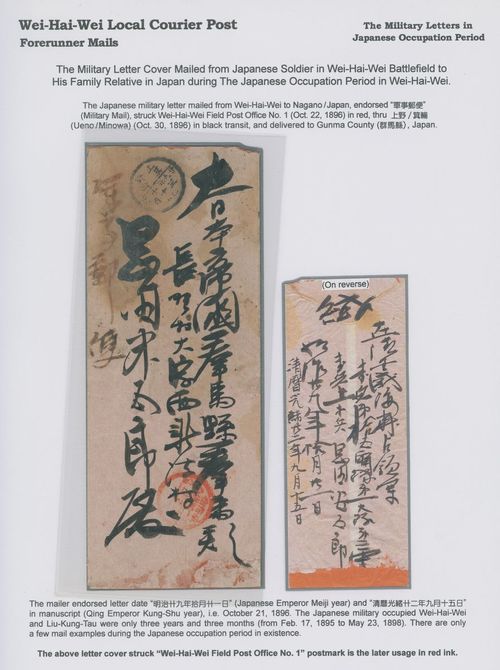 Wei-Hai-Wei Local Courier Post
Forerunner Mails
The Military Letters in
Japanese Occupation Period
The Military Letter Cover Mailed from Japanese Soldier in Wei-Hai-Wei Battlefield to
His Family Relative in Japan during The Japanese Occupation Period in Wei-Hai-Wei.
The Japanese military letter mailed from Wei-Hai-Wei to Nagano/Japan, endorsed “軍事郵便”
(Military Mail), struck Wei-Hai-Wei Field Post Office No. 1 (Oct. 22, 1896) in red, thru 上野 / 箕輪
(Ueno/Minowa) (Oct. 30, 1896) in black transit, and delivered to Gunma County (群馬縣), Japan.
大日本帝國羣馬縣
長野村大字西新波村
郵便
(On reverse)
清曆光緒廿二年九月十五日
The mailer endorsed letter date “明治廿九年拾月廿一日” (Japanese Emperor Meiji year) and “清曆光緒廿二年九月十五日”
in manuscript (Qing Emperor Kung-Shu year), i.e. October 21, 1896. The Japanese military occupied Wei-Hai-Wei
and Liu-Kung-Tau were only three years and three months (from Feb. 17, 1895 to May 23, 1898). There are only
a few mail examples during the Japanese occupation period in existence.
The above letter cover struck “Wei-Hai-Wei Field Post Office No. 1” postmark is the later usage in red ink.